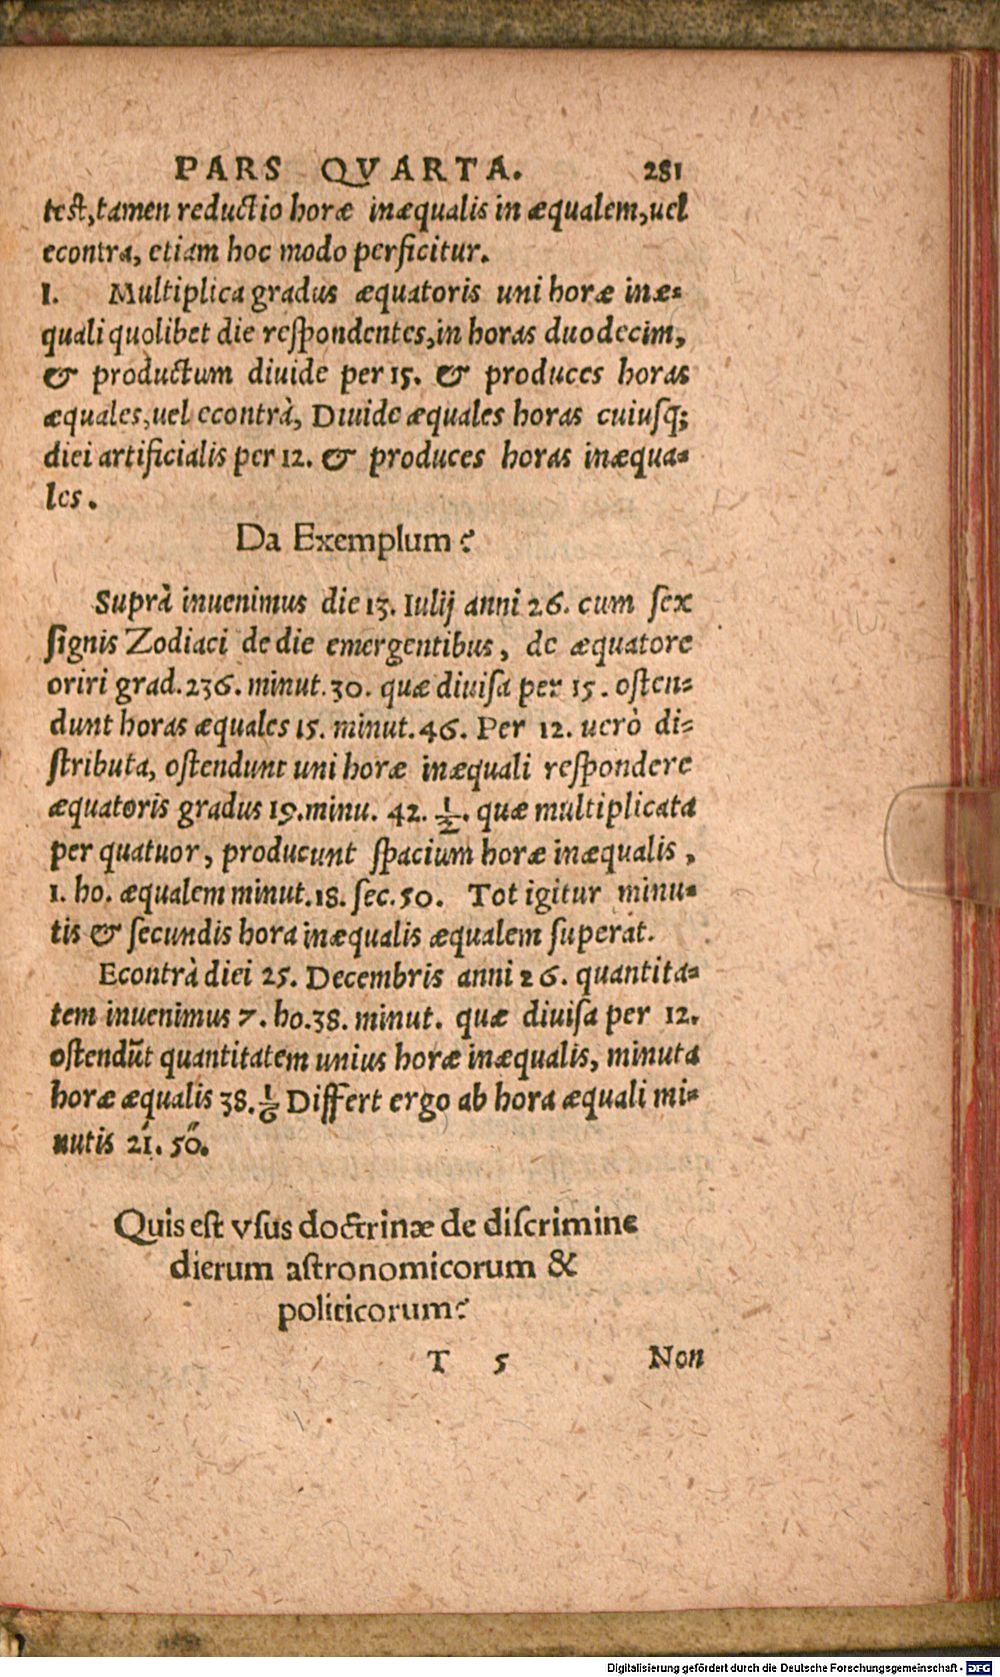 PARS QVARTA. 281
test, tamen reductio horæ inæqualis in æqualem, uel
econtra, etiam hoc modo perficitur.
I. Multiplica gradus æquatoris uni horæ inæ-
quali quolibet die reſpondentes, in horas duodecim,
& productum diuide per 15. & produces horas
æquales, uel econtrà, Diuide æquales horas cuiuſq;
diei artificialis per 12. & produces horas inæqua-
les.
Da Exemplum?
Suprà inuenimus die 13. Iulij anni 26. cum ſex
ſignis Zodiaci de die emergentibus, de æquatore
oriri grad. 236. minut. 30. quæ diuiſa per 15. oſten-
dunt horas æquales 15. minut. 46. Per 12. uerò di-
ſtributa, oſtendunt uni horæ inæquali reſpondere
æquatoris gradus 19. minu. 42. 1/2. quæ multiplicata
per quatuor, producunt ſpacium horæ inæqualis,
1. ho. æqualem minut. 18. ſec. 50. Tot igitur minu-
tis & ſecundis hora inæqualis æqualem ſuperat.
Econtrà diei 25. Decembris anni 26. quantita-
tem inuenimus 7. ho. 38. minut. quæ diuiſa per 12.
oſtendūt quantitatem unius horæ inæqualis, minuta
horæ æqualis 38. 1/6 Differt ergo ab hora æquali mi-
nutis 21́. 50̋.
Quis eſt vſus doctrinæ de diſcrimine
dierum aſtronomicorum &
politicorum?
T 5 Non
Digitalisierung gefördert durch die Deutsche Forschungsgemeinschaft - DFG